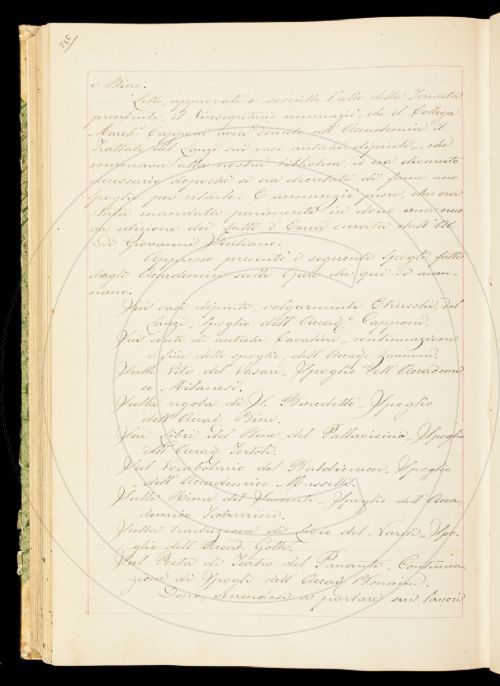 e Bini.
Letto, approvato e descritto l'atto della Tornata
precedente, il Vicesegretario annunziò, che il Collega
March. Capponi avea donato all' Accademia il
Trattato del Lanzi sui vasi antichi dipinti, che
mancava alla nostra biblioteca, ed era divenuto
necessario dopochè si era decretato di farne uno
spoglio per citarlo. E annunziò pure, che era
stata mandata parimente in dono una
edizione dei fatti d'Enea curata dall' Ab.
Di Giovanni
Appresso presentò i seguenti spogli fatti
dagli Accademici sulle Opere che qui si accen-
nano.
Sui vasi dipinti, volgarmente Etruschi, del
Lanzi, spoglio dell' Accad.º Capponi.
Sui Conti di antichi Cavalieri, continuazione
e fine dello spoglio, dell' Accad. Zannoni.
Sulle Vite del Vasari, Spoglio dell' Accademi-
co Milanesi.
Sulla regola di S. Benedetto, Spoglio
dell' Accad. Bini.
Sui libri del Bene del Pallavicino, Spoglio
dell' Accad. Tortoli.
Sul Vocabolario del Baldinucci, Spoglio
dell' Accademico
Sulle Rime del Spoglio dell' Acca-
demico
Sulla traduzione di Livio del Nardi, Spo-
glio dell' Accad. Gotti.
Sul Poeta di Teatro del Pananti, Continua-
zione di Spogli dell' Accad. Bonaini.
Dopo, venendosi a parlare sui lavori